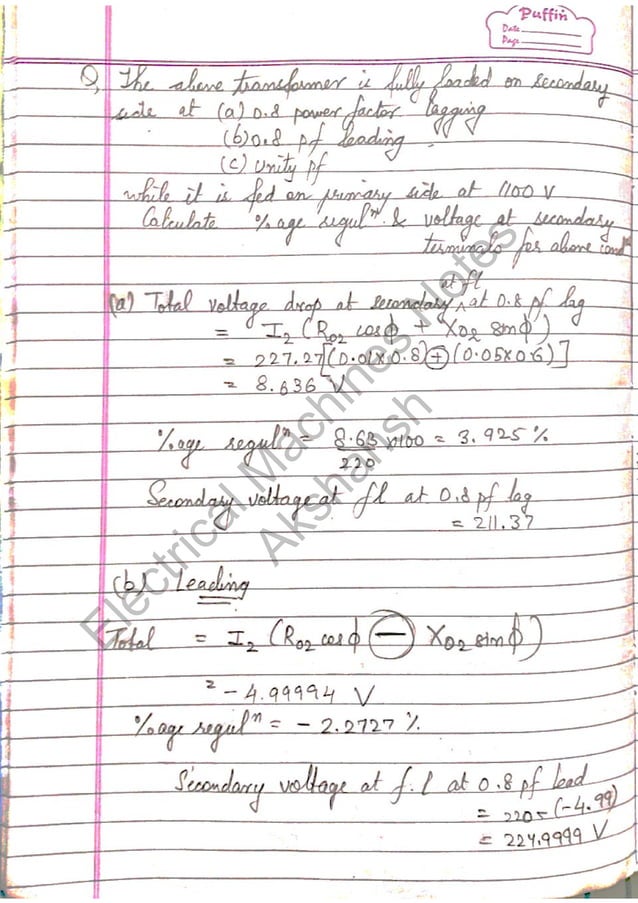 Puffin
Date
Page
Q, The above transformer is fully loaded on secondary
side at (a) 0.8 power factor lagging
(b) 0.8 pf leading
(c) unity pf
while it is fed on primary side at 1100 V
Calculate %age regulⁿ & voltage at secondary
terminals for above condⁿ
(a) Total voltage drop at secondary ^ at fl at 0.8 pf lag
= I₂ (R₀₂ cosϕ + X₀₂ sinϕ)
= 227.27[(0.01×0.8)+(0.05×0.6)]
= 8.636 V
%age regulⁿ = 8.63/220 ×100 = 3.925 %
Secondary voltage at fl at 0.8 pf lag
= 211.37
(b) Leading
Total = I₂ (R₀₂ cosϕ − X₀₂ sinϕ)
= -4.99994 V
%age regulⁿ = - 2.2727 %
Secondary voltage at f.l at 0.8 pf lead
= 220-(-4.99)
= 224.9999 V
Electrical Machines Notes
Akshansh